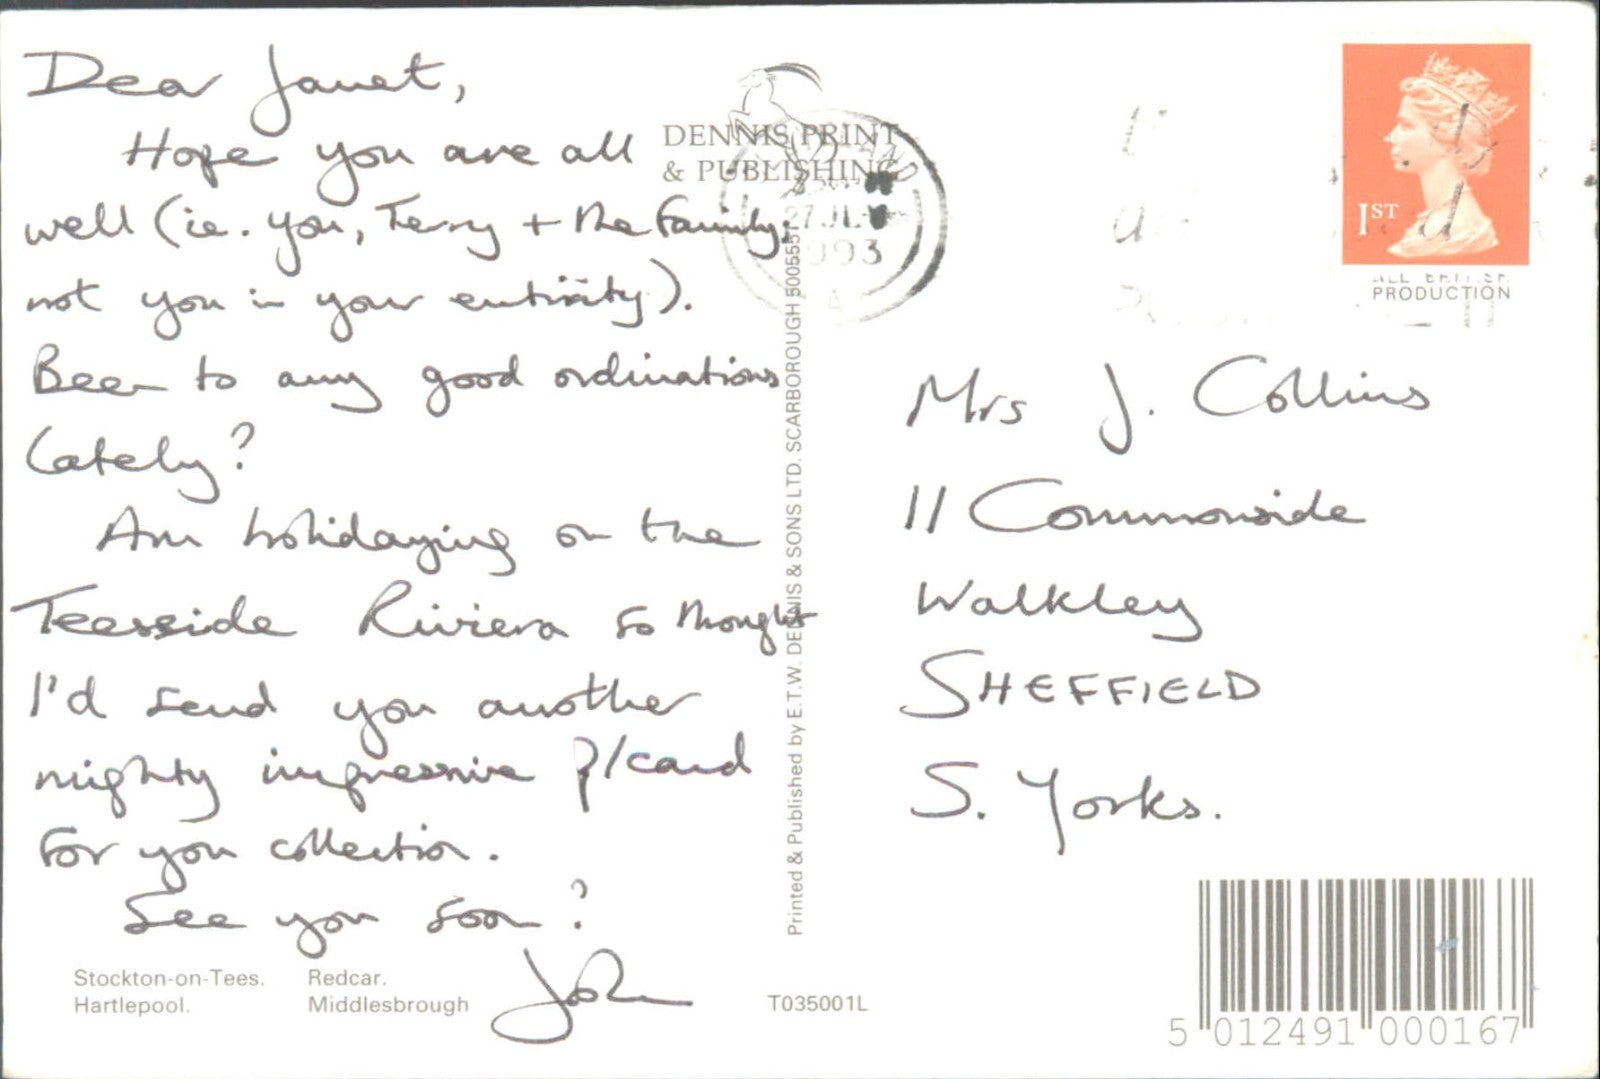 Dear Janet,
Hope you are all
well (ie. you, Terry + the family;
not you in your entirity).
Been to any good ordinations
lately?
Am holidaying on the
Teesside Riviera so thought
I'd send you another
mighty impressive p/card
for you collection.
See you soon?
John
Stockton-on-Tees. Redcar.
Hartlepool. Middlesbrough
DENNIS PRINT
& PUBLISHING
27 JLY
1993
A
Printed & Published by E.T.W. DENNIS & SONS LTD. SCARBOROUGH 5005557
T035001L
1ST
PRODUCTION
Mrs J. Collins
11 Commonside
Walkley
SHEFFIELD
S. Yorks.
5 012491 000167